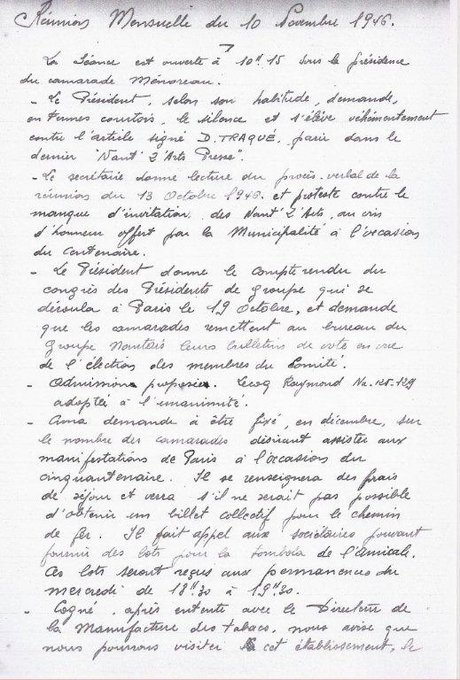 Réunion Mensuelle du 10 Novembre 1946.
La Séance est ouverte à 10h.15 sous la présidence
du camarade Ménoreau.
- Le Président, selon son habitude, demande,
en termes courtois, le silence et s'élève véhémentement
contre l'article signé D. TRAQUÉ, parue dans le
dernier "Nant' Z'Arts Presse".
- Le secrétaire donne lecture du procès-verbal de la
réunion du 13 Octobre 1946. et proteste contre le
manque d'invitation des Nant' Z'Arts, au vin
d'honneur offert par la Municipalité à l'occasion
du Centenaire.
- Le Président donne le compte rendu du
congrès des Présidents de groupe qui se
déroula à Paris le 19 Octobre, et demande
que les camarades remettent au bureau du
Groupe Nantais leurs bulletins de vote en vue
de l'élection des membres du Comité.
- Admission proposée. Lecoq Raymond Na. 125-129
adoptée à l'unanimité.
- demande à être fixé, en décembre, sur
le nombre des camarades désirant assister aux
manifestations de Paris à l'occasion du
cinquantenaire. Il se renseignera des frais
de séjour et verra s'il ne serait pas possible
d'obtenir un billet collectif pour le chemin
de fer. Il fait appel aux sociétaires pouvant
fournir des lots pour la tombola de l'Amicale.
Ces lots seront reçus aux permanences du
mercredi de 18h30 à 19h30.
- Cogné, après entente avec le Directeur de
la Manufacture des tabacs, nous avise que
nous pourrons visiter cet établissement, le